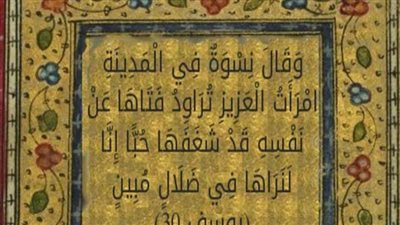 وَقَالَ نِسْوَةٌ فِي الْمَدِينَةِ
امْرَأَتُ الْعَزِيزِ تُرَاوِدُ فَتَاهَا عَنْ
نَفْسِهِ قَدْ شَغَفَهَا حُبًّا إِنَّا
لَنَرَاهَا فِي ضَلَالٍ مُبِينٍ
(يوسف 30)